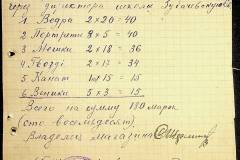 через директора школы
1 Ведра 2 x 20 = 40
2 Портреты 8 x 5 = 40
3 Мешки 2 x 18 = 36
4 Гвозди 2 x 17 = 34
5 Канат 1 x 15 = 15
6 Веники 5 x 3 = 15
Всего на сумму 180 марок
(сто восемьдесят)
Владелец магазина